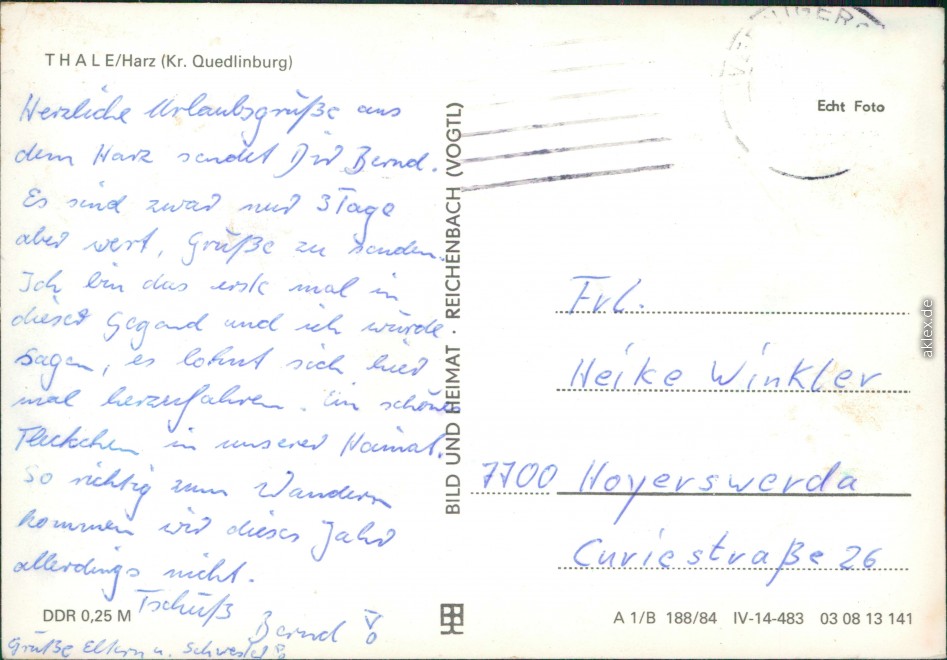 THALE/Harz (Kr. Quedlinburg)
Herzliche Urlaubsgrüße aus
dem Harz sendet Dir Bernd.
Es sind zwar nur 3 Tage
aber wert, Grüße zu senden.
Ich bin das erste mal in
dieser Gegend und ich würde
sagen, es lohnt sich hier
mal herzufahren. Ein schönes
Fleckchen in unserer Heimat.
So richtig zum Wandern
kommen wir dieses Jahr
allerdings nicht.
Tschüß
Bernd
Grüße Eltern u. Schwester
DDR 0,25 M
BILD UND HEIMAT · REICHENBACH (VOGTL)
Echt Foto
Frl.
Heike Winkler
7700 Hoyerswerda
Curiestraße 26
A 1/B 188/84 IV-14-483 03 08 13 141
aklex.de